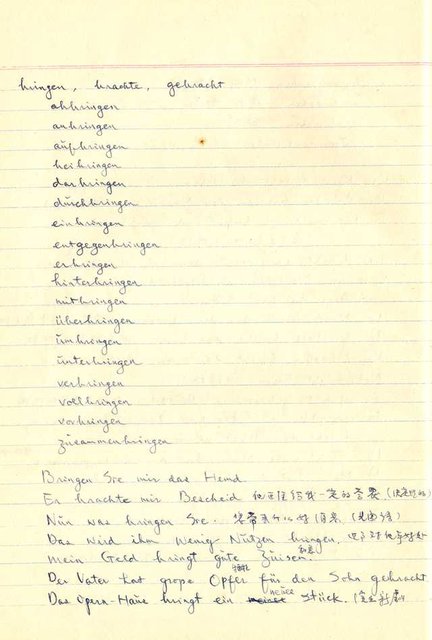 bringen, brachte, gebracht
abbringen
anbringen
aufbringen
beibringen
darbringen
durchbringen
einbringen
entgegenbringen
erbringen
hinterbringen
mitbringen
überbringen
umbringen
unterbringen
verbringen
vollbringen
vorbringen
zusammenbringen
Bringen Sie mir das Hemd
Er brachte mir Bescheid 他 给我一定的答案
Nur was bringen Sie. 您带来什么好消息
Das wird ihm wenig Nutzen bringen.
Mein Geld bringt gute Zinsen. 利息
牺牲
Der Vater hat große Opfer für den Sohn gebracht
neues
Das Opern-Haus bringt ein Stück.